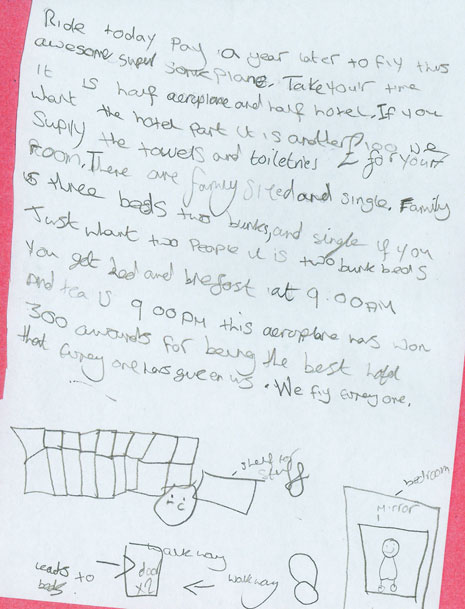 Ride today Pay a year later to fly this
awesome super sonic plane. Take your time
it is half aeroplane and half hotel. If you
want the hotel part it is another £100 we
Suply the towels and toiletries for your
room. There are family sized and single. Family
is three beds two bunks, and single if you
Just want two people it is two bunk beds
You get bed and brefast at 9.00AM
And tea is 9 00PM this aeroplane has won
300 awards for being the best hotel
that evrey one has given us. We fly evrey one.
shelf for
bedroom
Mirror
walkway
door
x2
leads to
beds
walkway